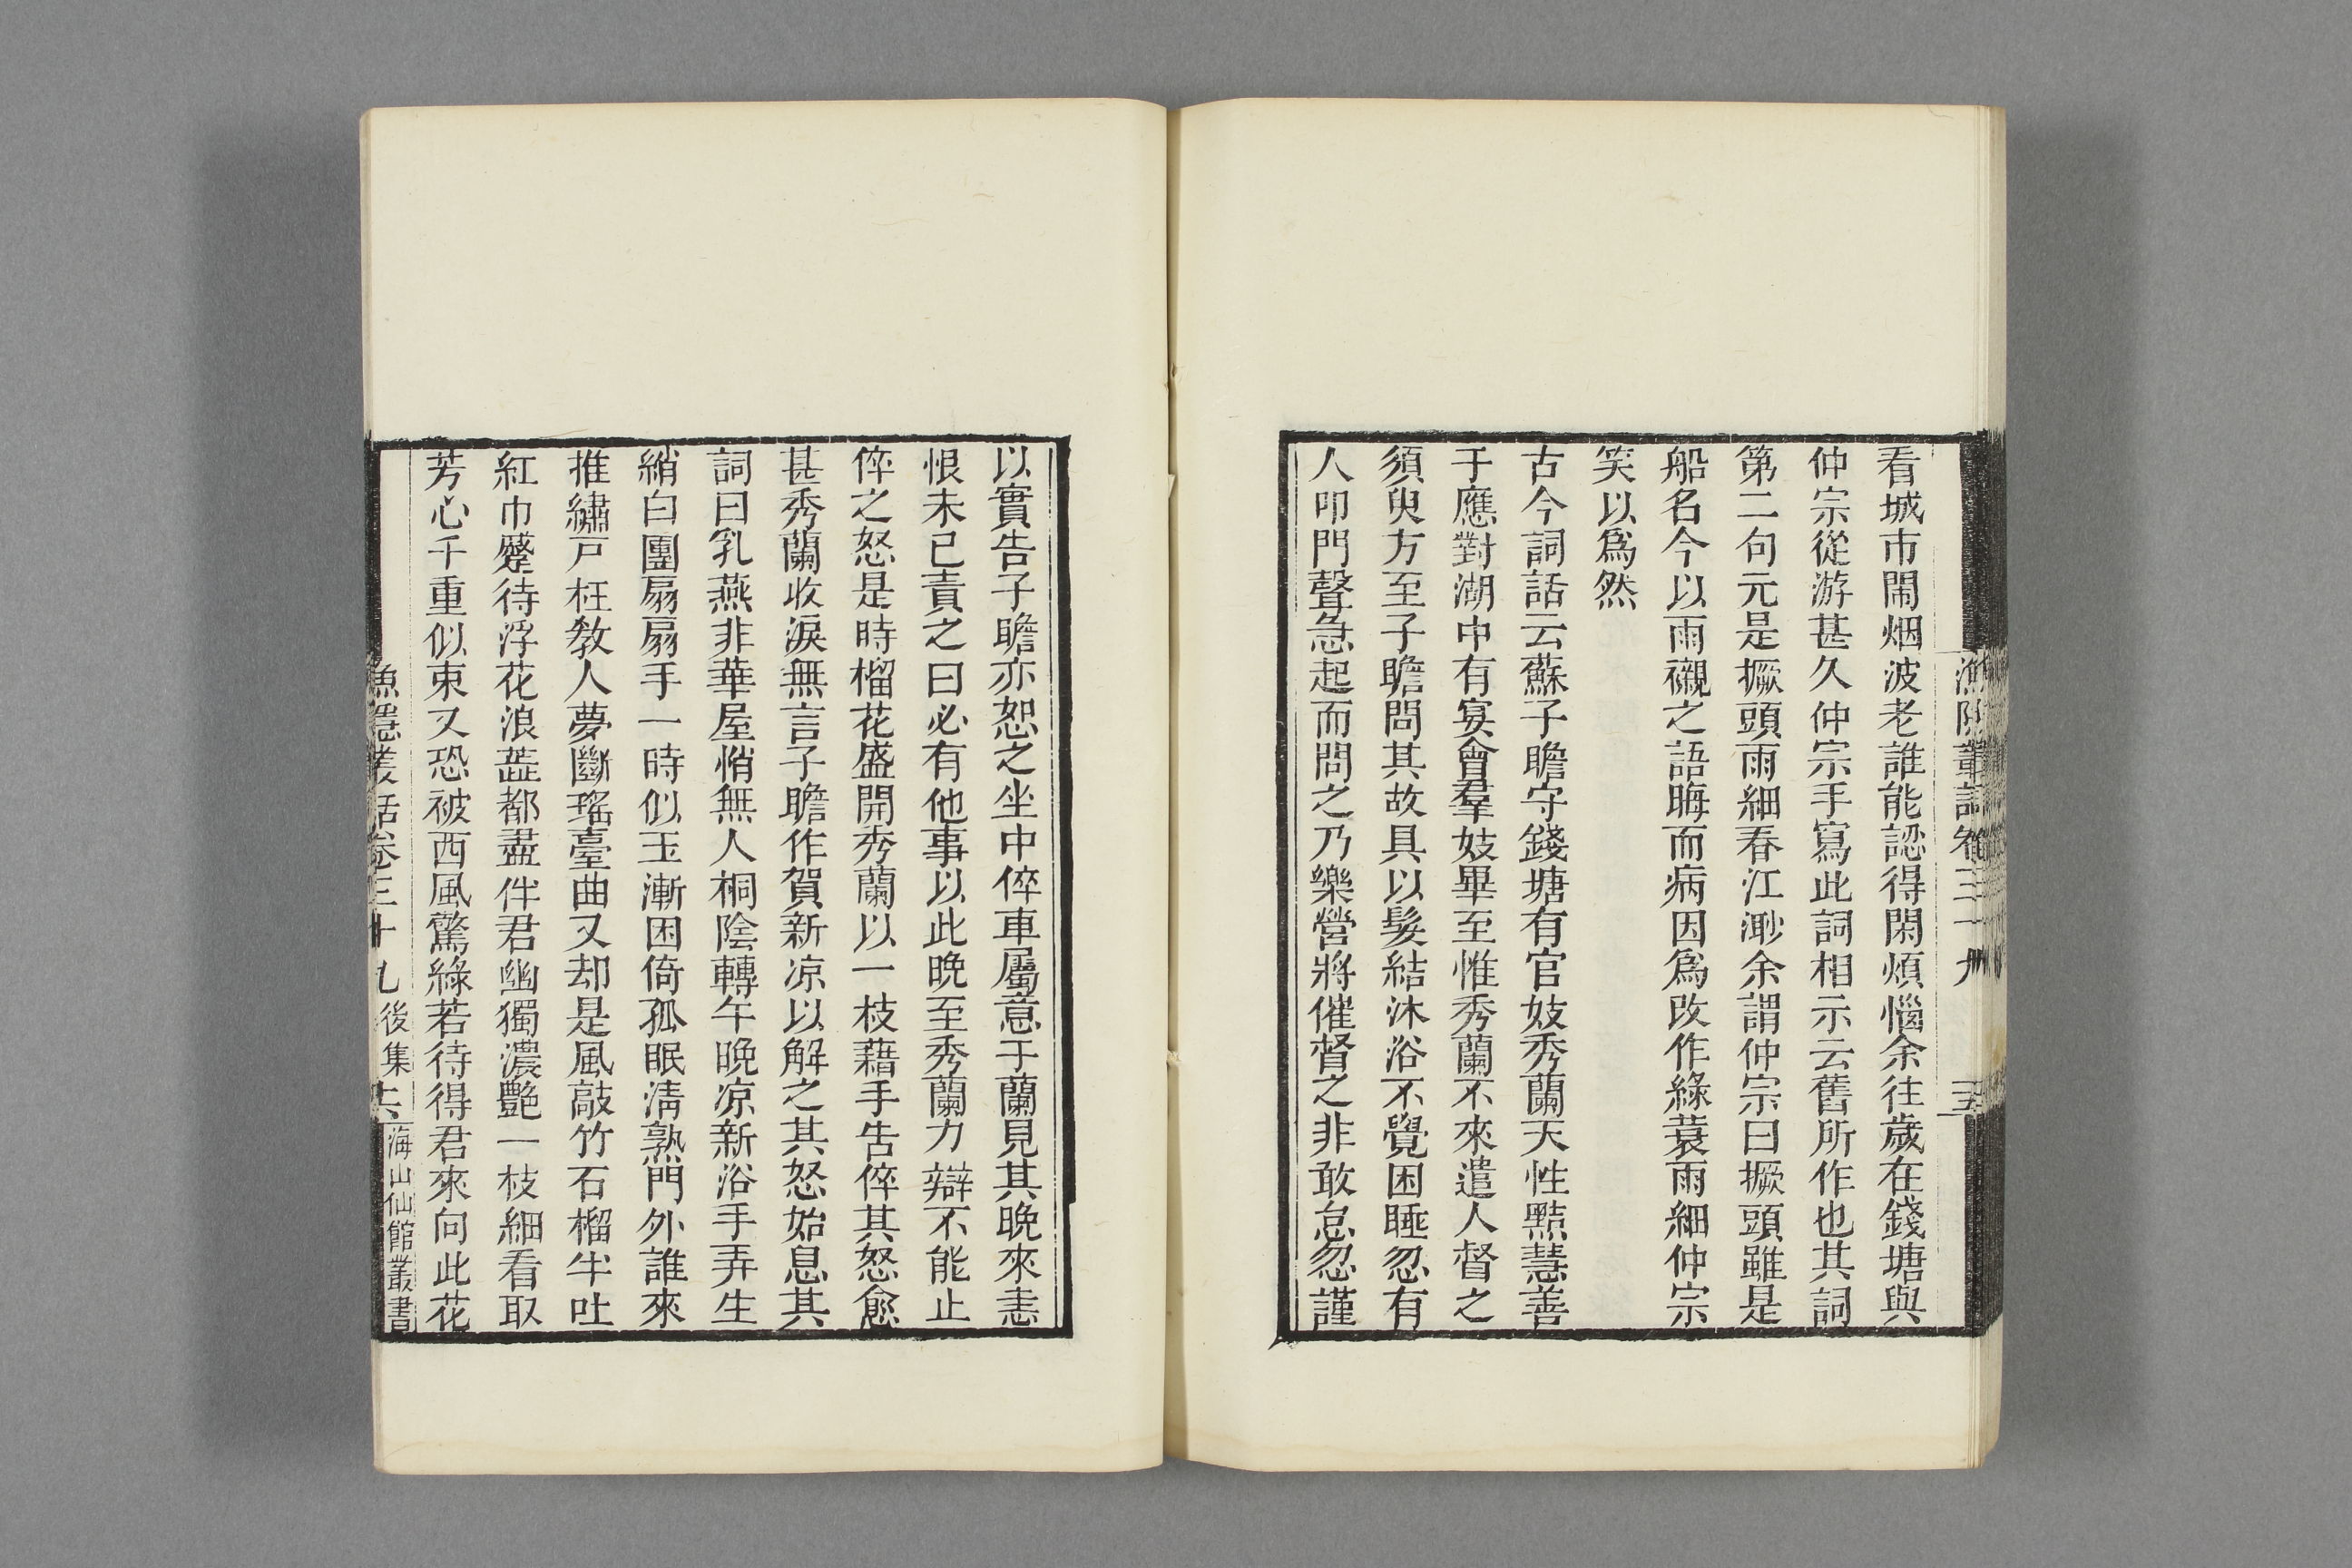 看城市鬧烟波老誰能認得閑煩惱余往歲在錢塘與
仲宗從游甚久仲宗手寫此詞相示云舊所作也其詞
第二句元是撅頭雨細春江渺余謂仲宗曰撅頭雖是
船名今以雨襯之語晦而病因爲改作綠蓑雨細仲宗
笑以爲然
古今詞話云蘇子瞻守錢塘有官妓秀蘭天性黠慧善
于應對湖中有宴會羣妓畢至惟秀蘭不來遣人督之
須臾方至子瞻問其故具以髮結沐浴不覺困睡忽有
人叩門聲急起而問之乃樂營將催督之非敢怠忽謹
以實告子瞻亦恕之坐中倅車屬意于蘭見其晚來恚
恨未已責之曰必有他事以此晚至秀蘭力辯不能止
倅之怒是時榴花盛開秀蘭以一枝藉手告倅其怒愈
甚秀蘭收淚無言子瞻作賀新凉以解之其怒始息其
詞曰乳燕非華屋悄無人桐陰轉午晚凉新浴手弄生
綃白團扇扇手一時似玉漸困倚孤眠清熟門外誰來
推繡戸枉敎人夢斷瑤臺曲又却是風敲竹石榴半吐
紅巾蹙待浮花浪蕋都盡伴君幽獨濃艷一枝細看取
芳心千重似束又恐被西風驚綠若待得君來向此花
漁隱叢話卷三十九後集 六 海山仙館叢書